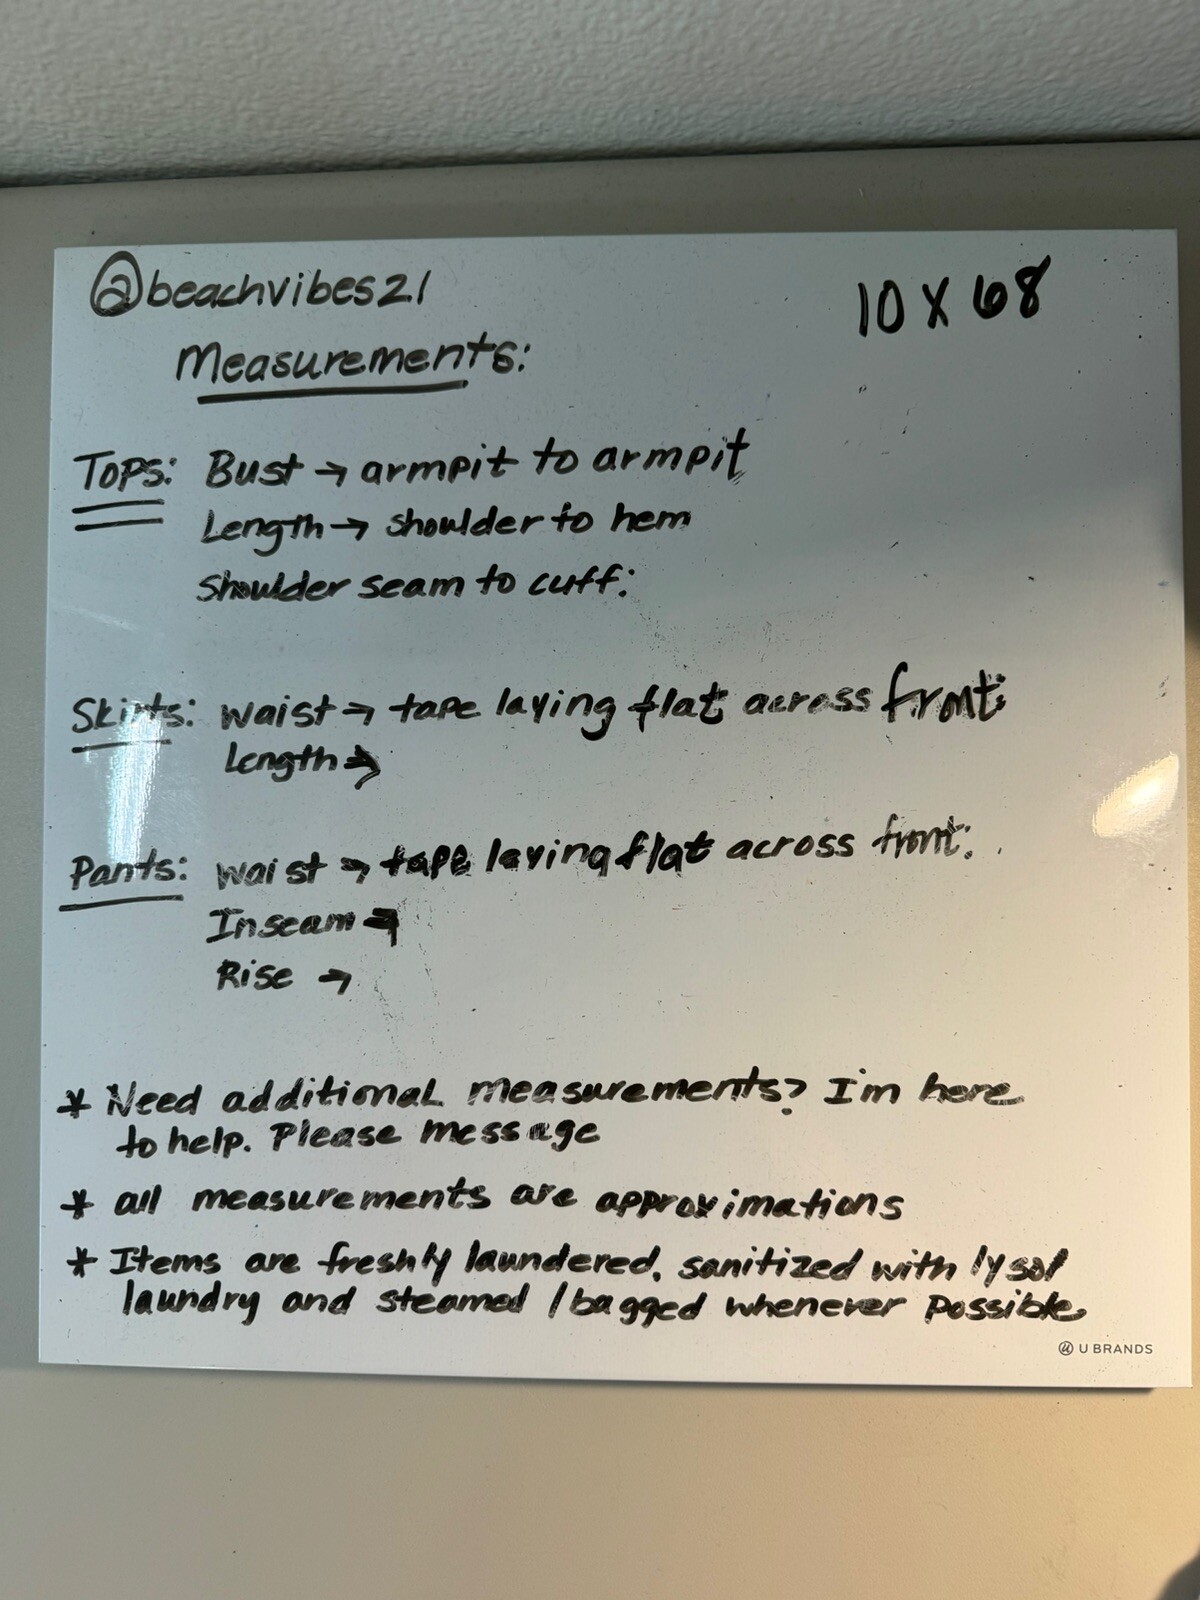 @beachvibes21
10 X 68
Measurements:
Tops: Bust → armpit to armpit
Length → shoulder to hem
Shoulder seam to cuff:
Skirts: Waist → tape laying flat across front:
Length →
Pants: Waist → tape laying flat across front:
Inseam →
Rise →
* Need additional measurements? I'm here
to help. Please message
* all measurements are approximations
* Items are freshly laundered, sanitized with lysol
laundry and steamed / bagged whenever possible
U BRANDS